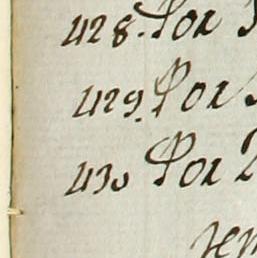 428. Por
429. Por
430 Por